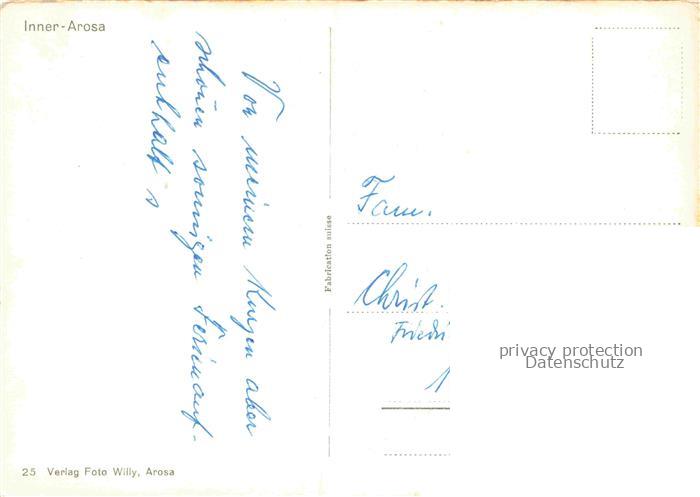 Inner-Arosa
Von meinem kurzen aber
schönen sonnigen Ferienauf-
enthalt s
Fabrication suisse
Fam.
Christ.
Friedri
1
privacy protection
Datenschutz
25 Verlag Foto Willy, Arosa